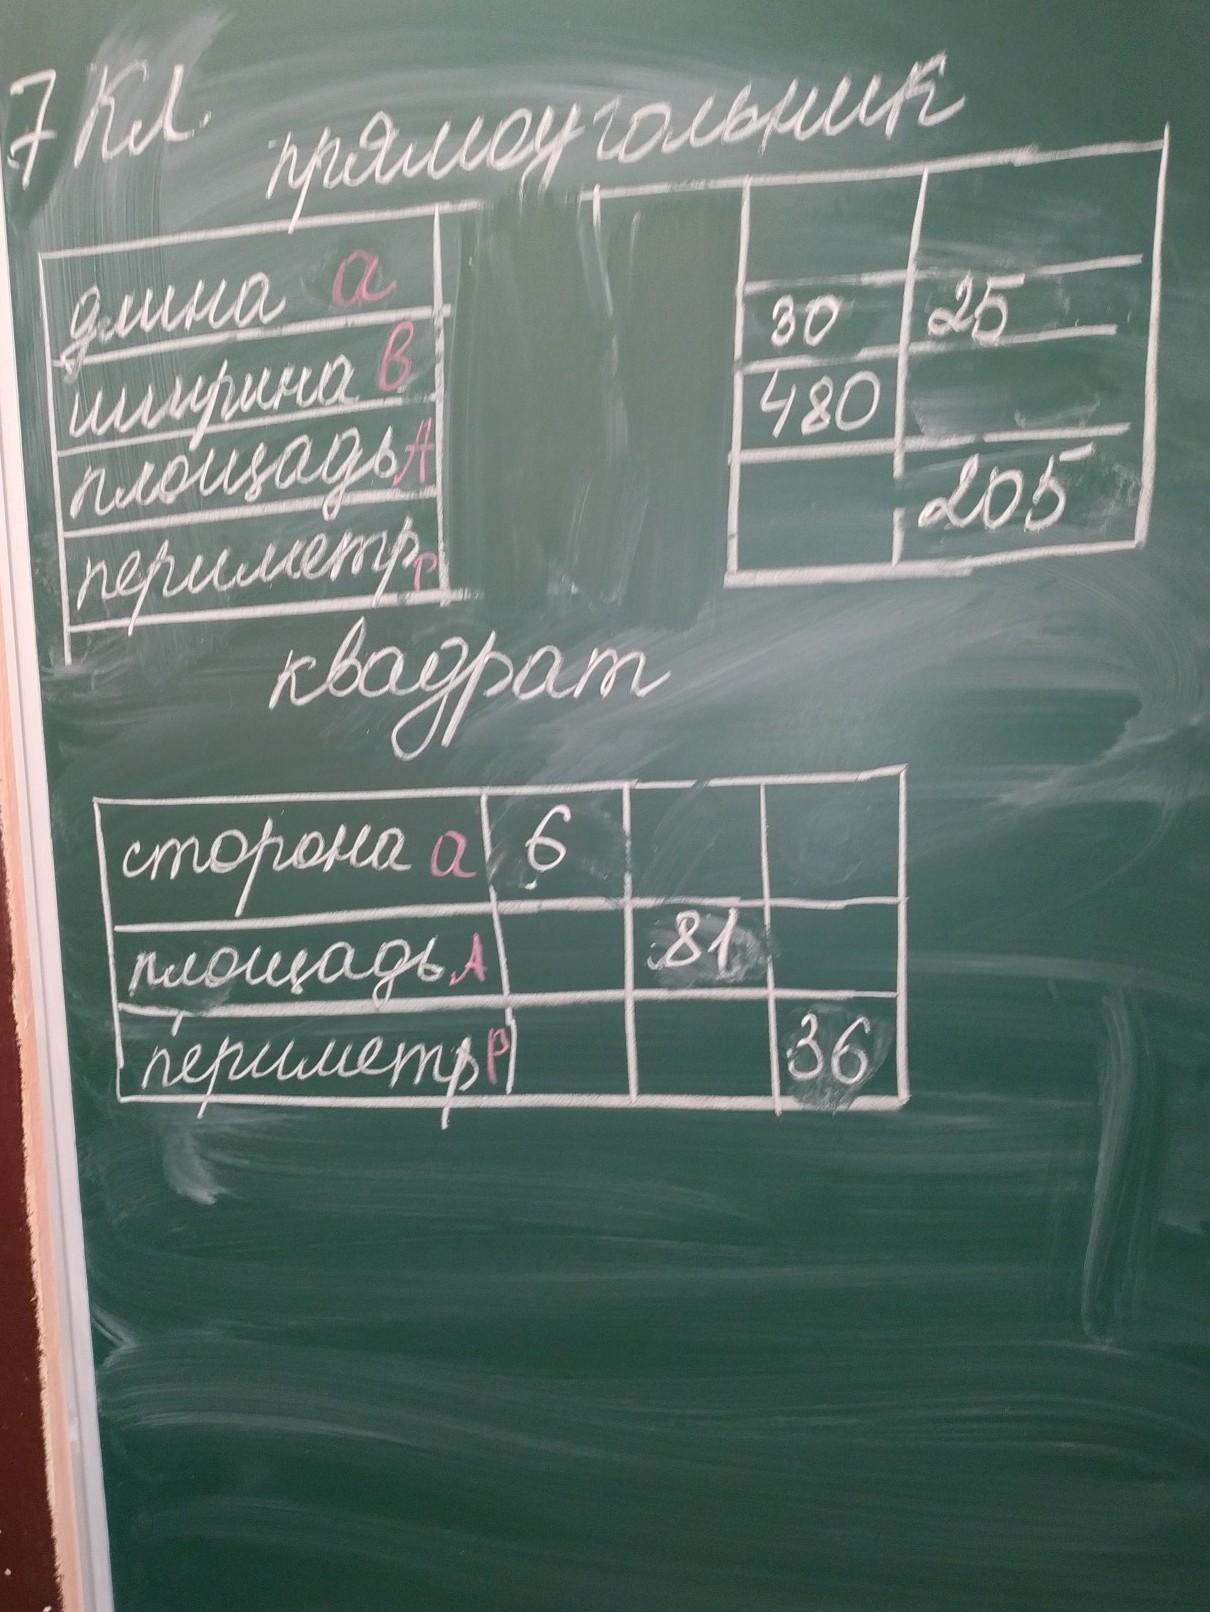 7 Кл.
прямоугольник
длина a
ширина в 30 25
площадь A 480
периметр P 205
квадрат
сторона a 6
площадь A 81
периметр P 36